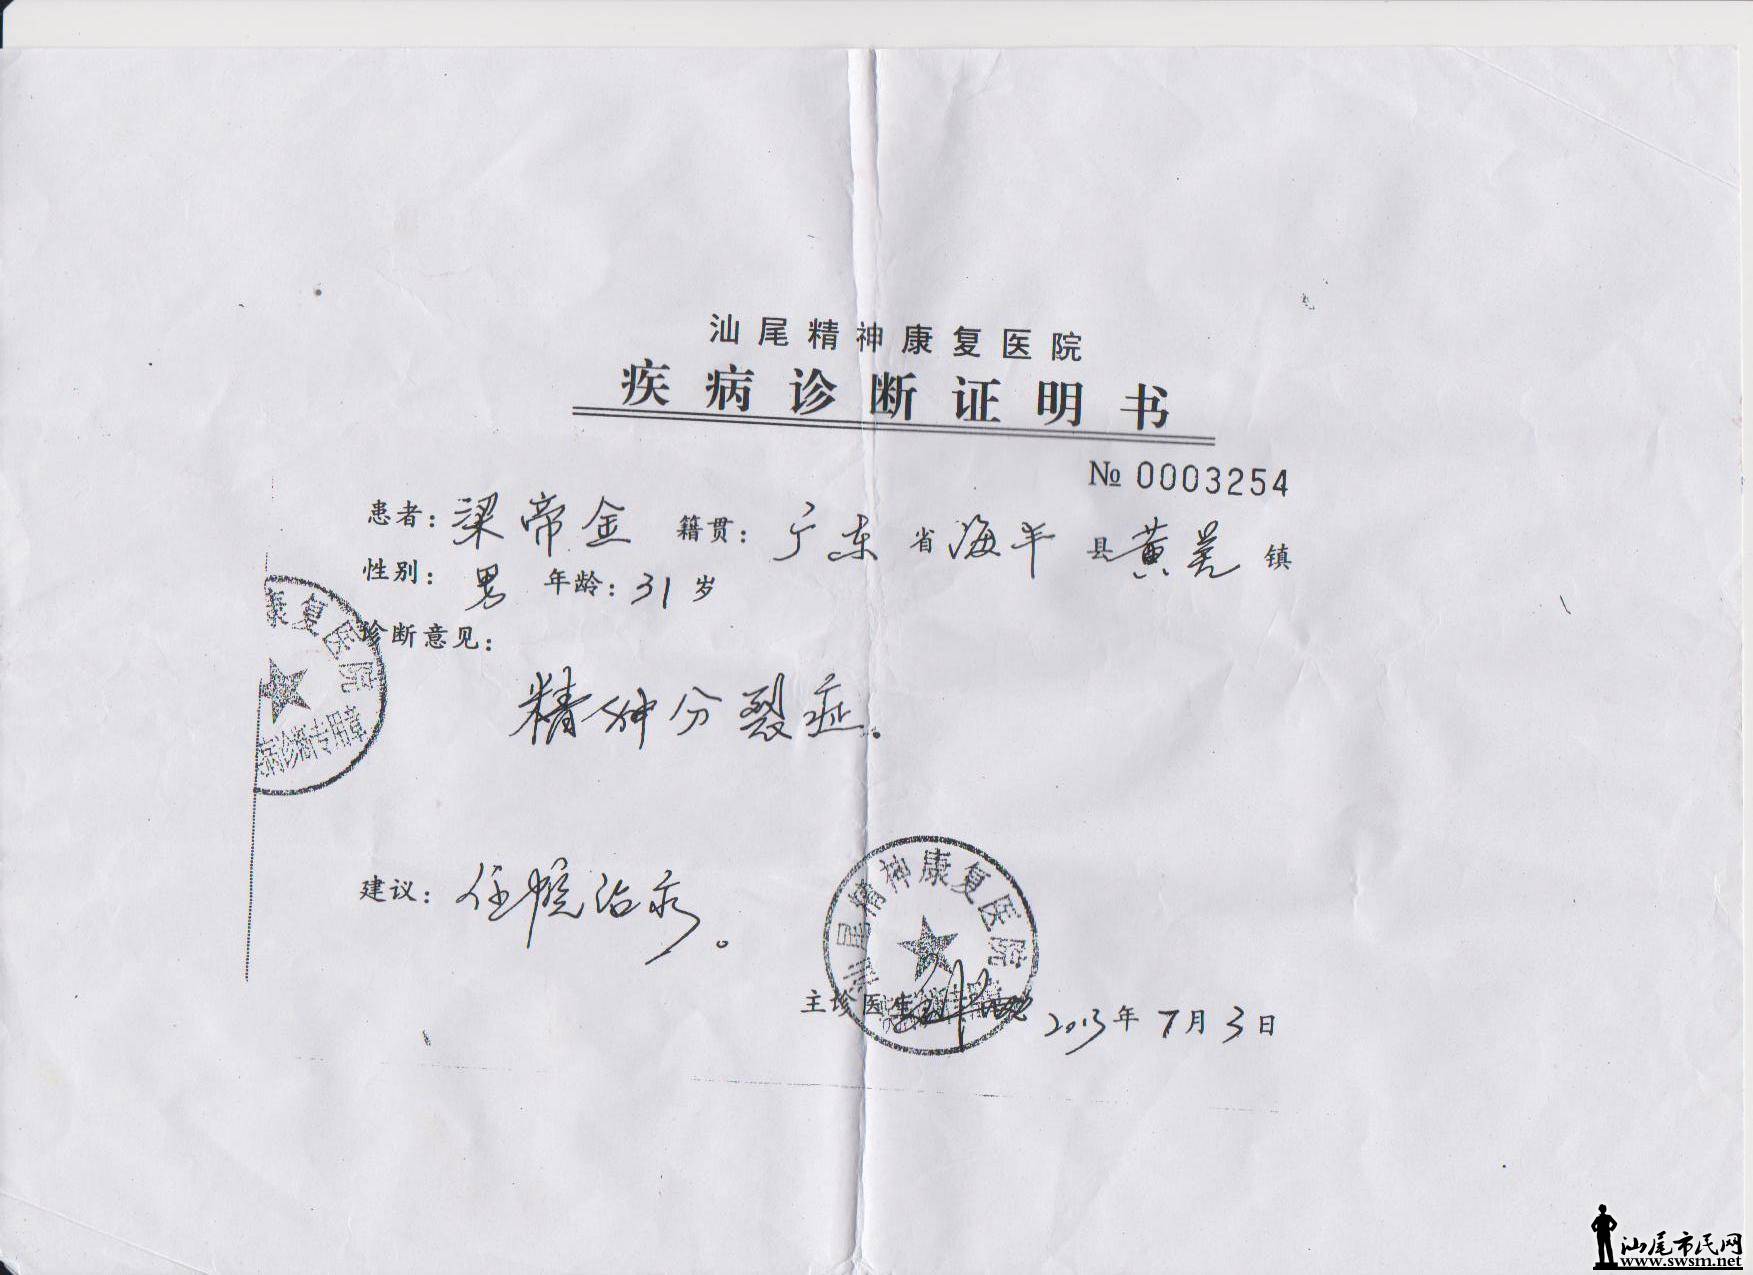 汕尾精神康复医院
疾病诊断证明书
№ 0003254
患者：梁帝金 籍贯：广东省海丰县黄羌镇
性别：男 年龄：31岁
康复医院
病诊断专用章
诊断意见：
精神分裂症。
建议：住院治疗。
汕尾精神康复医院
主诊医生 2013年7月3日
汕尾市民网
www.swsm.net